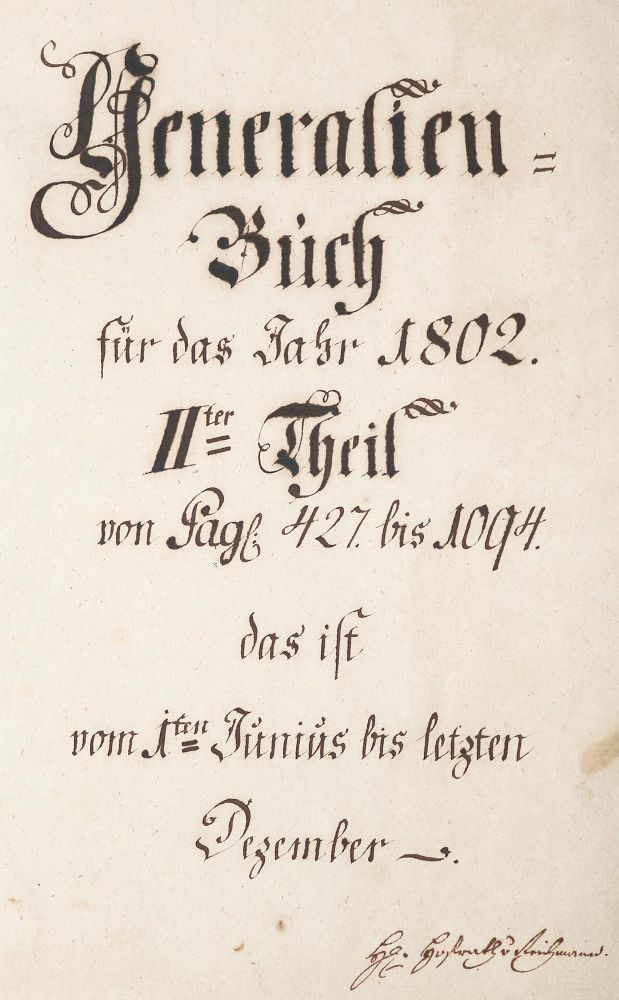 Generalien=
Buch
für das Jahr 1802.
IIter Theil
von Pag. 427. bis 1094.
das ist
vom 1ten Junius bis letzten
Dezember —.
Hofrath v Reichmann.